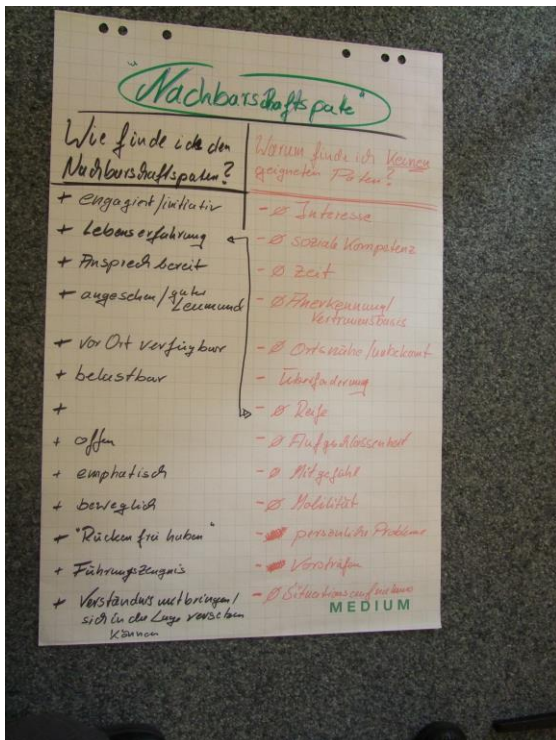 "Nachbarschaftspate"
Wie finde ich den
Nachbarschaftspaten?
+ engagiert/initiativ
+ Lebenserfahrung
+ Ansprechbereit
+ angesehen/guter
Leumund
+ vor Ort verfügbar
+ belastbar
+
+ offen
+ emphatisch
+ beweglich
+ "Rücken frei haben"
+ Führungszeugnis
+ Verständnis mitbringen/
sich in die Lage versetzen
können
Warum finde ich Keinen
geeigneten Paten?
- Ø Interesse
- Ø soziale Kompetenz
- Ø Zeit
- Ø Anerkennung/
Vertrauensbasis
- Ø Ortsnähe/unbekannt
- Überforderung
- Ø Reife
- Ø Aufgeschlossenheit
- Ø Mitgefühl
- Ø Mobilität
- persönliche Probleme
- Vorstrafen
- Ø
MEDIUM